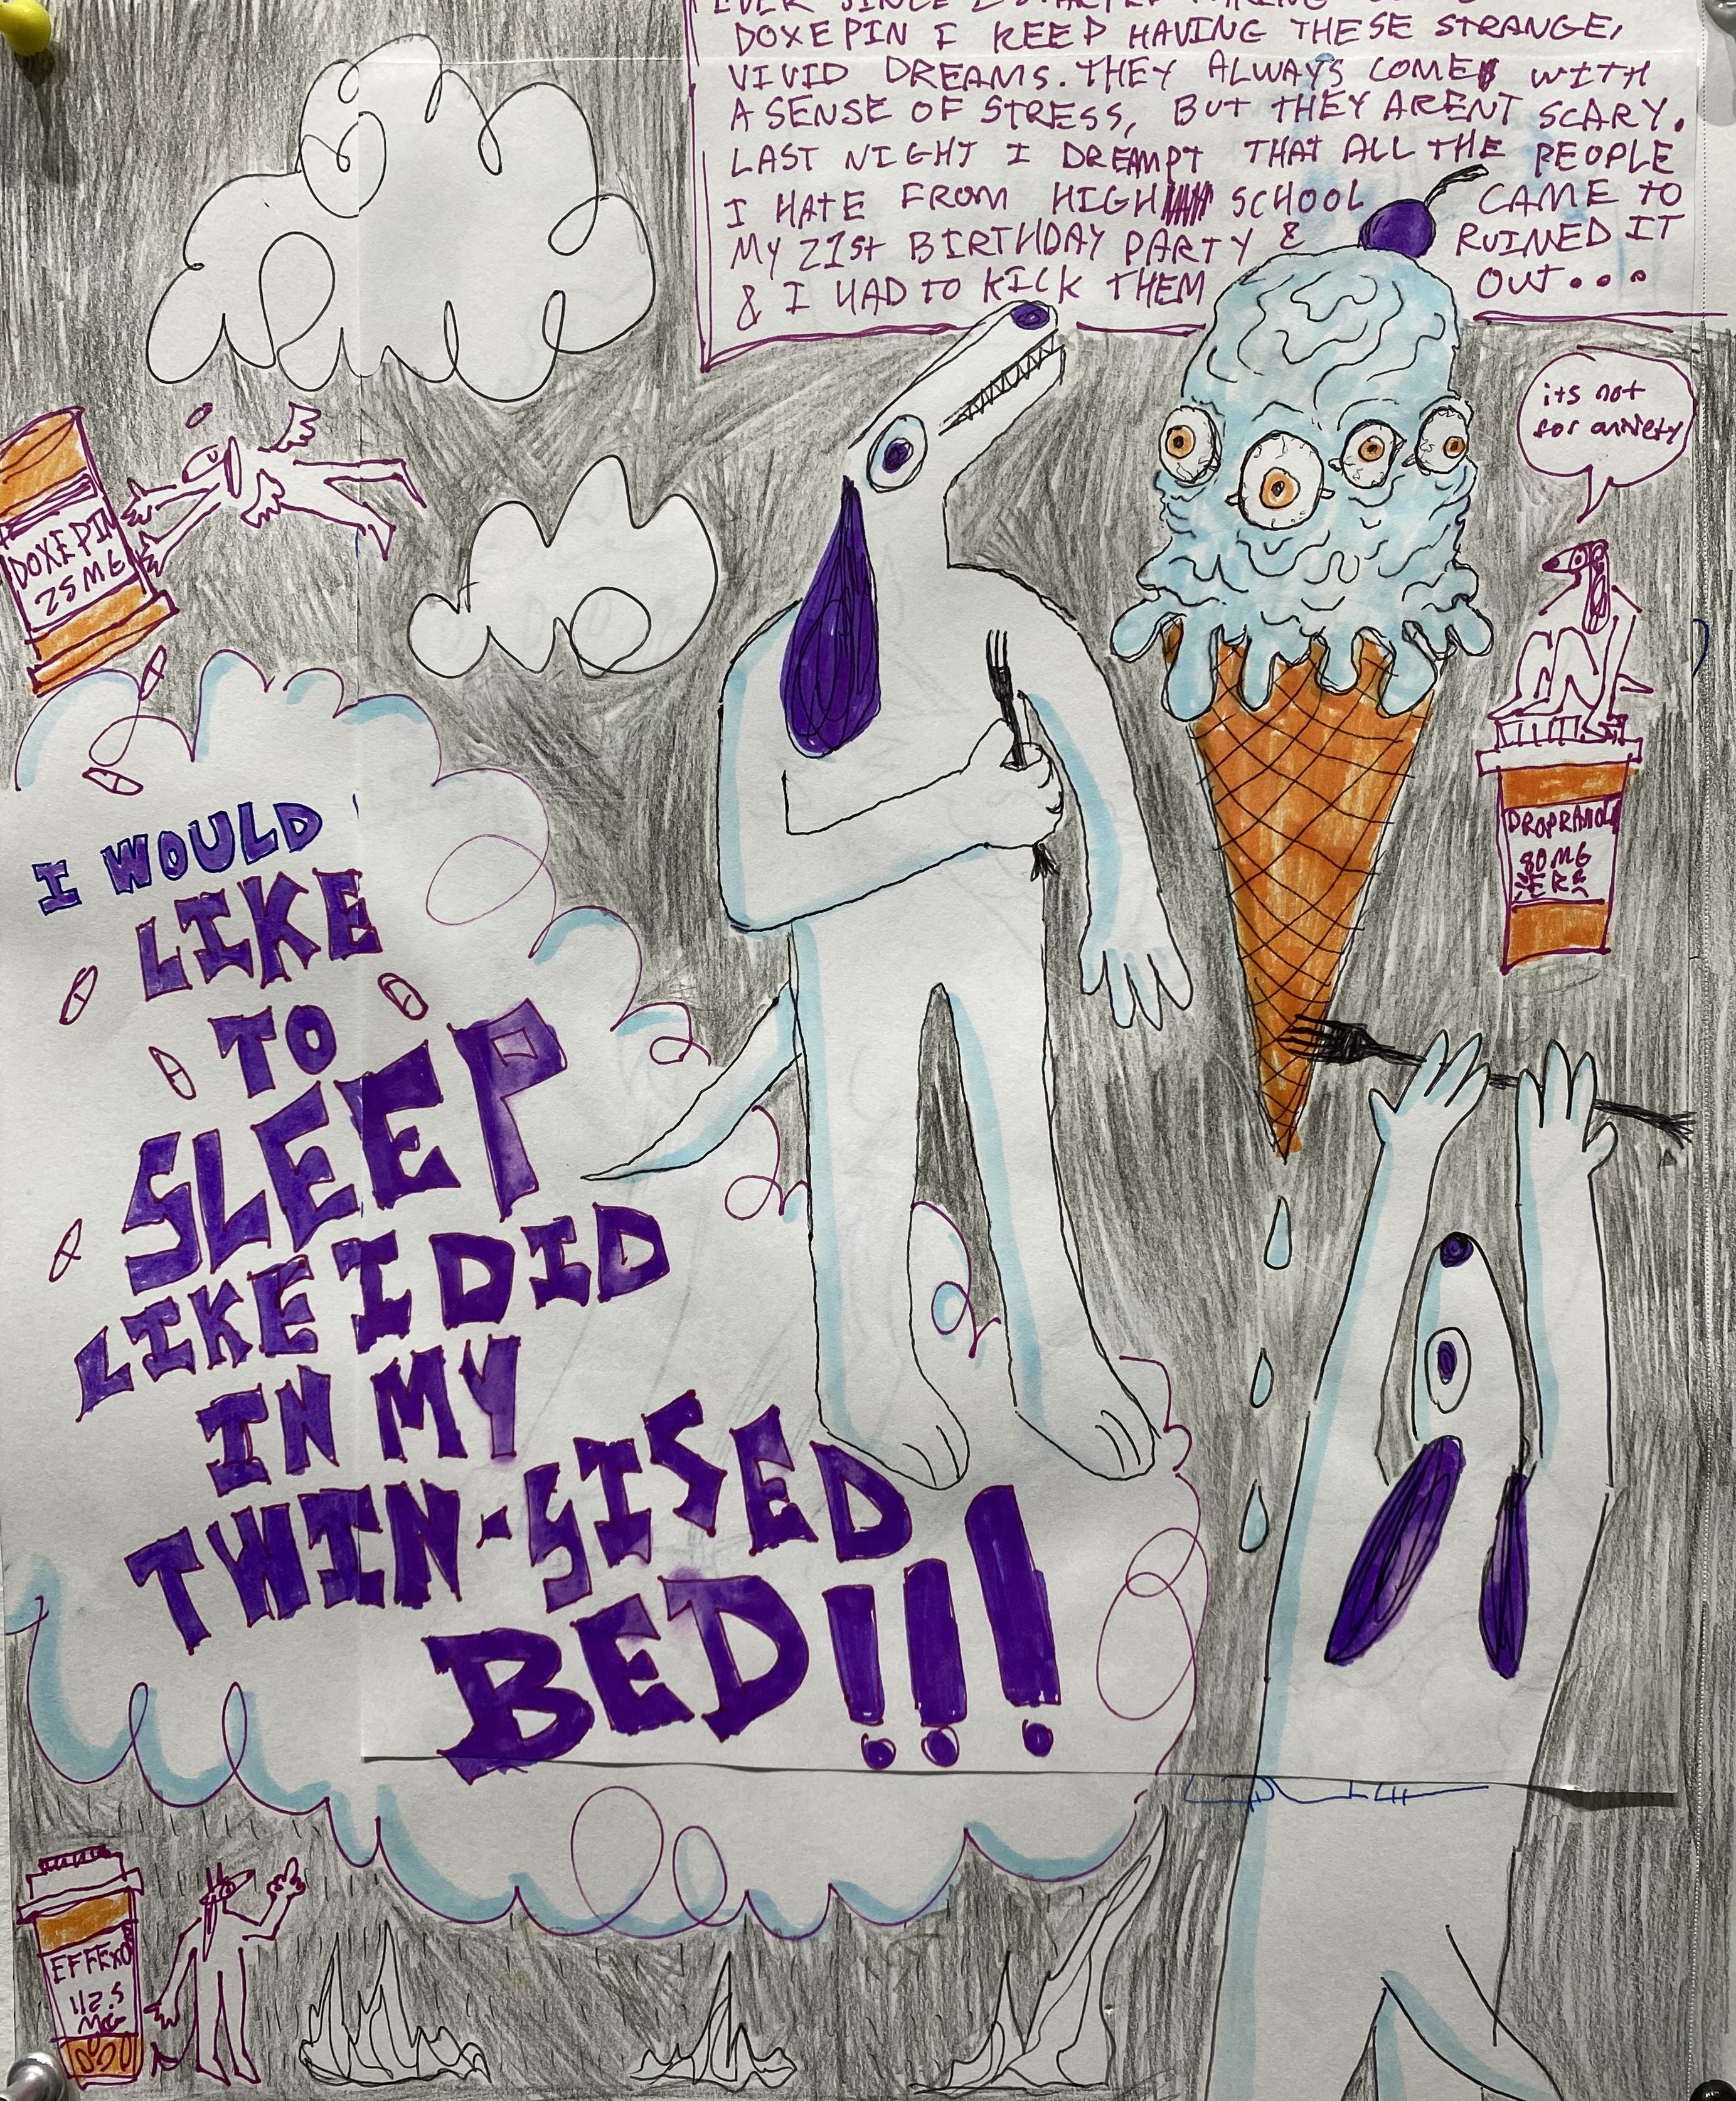 DOXEPIN I KEEP HAVING THESE STRANGE,
VIVID DREAMS. THEY ALWAYS COME WITH
A SENSE OF STRESS, BUT THEY ARENT SCARY.
LAST NIGHT I DREAMPT THAT ALL THE PEOPLE
I HATE FROM HIGH SCHOOL CAME TO
MY 21St BIRTHDAY PARTY & RUINED IT
& I HAD TO KICK THEM OUT...
its not
for anxiety
DOXEPIN
25MG
I WOULD
LIKE
TO
SLEEP
LIKE I DID
IN MY
TWIN-SISED
BED!!!
PROPRANOL
80MG
EFFEXO
112.5
MG